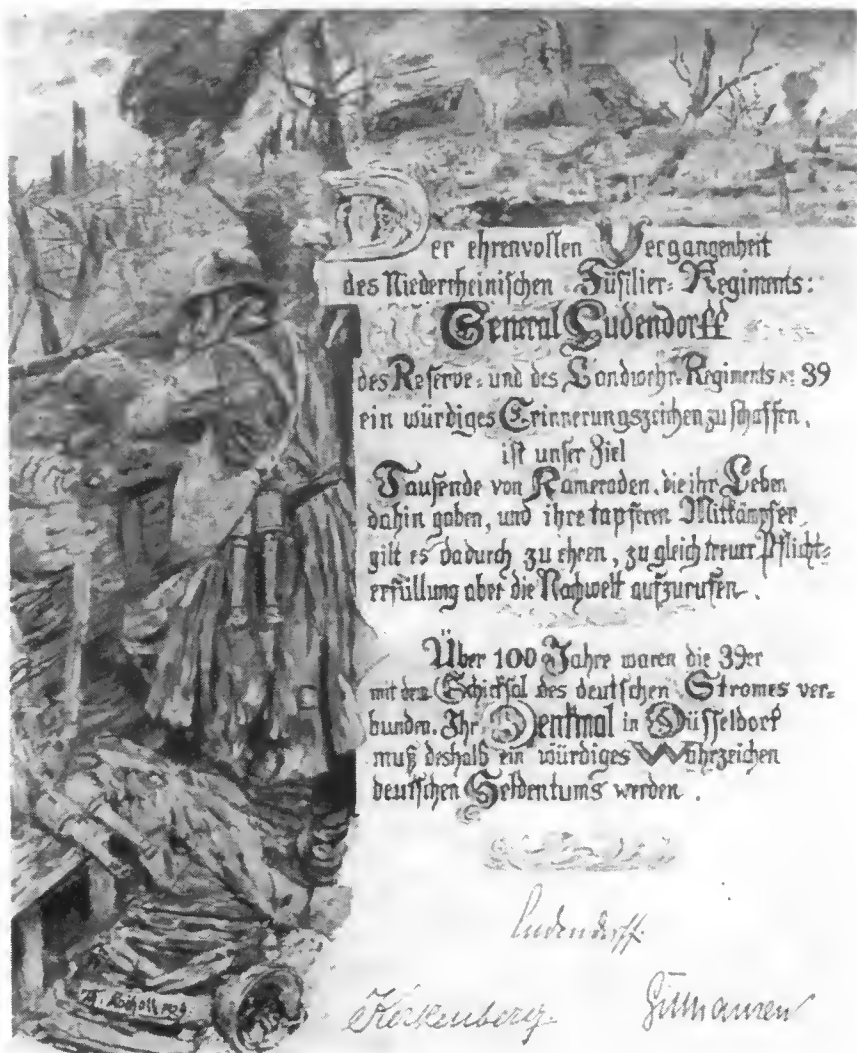 Der ehrenvollen Vergangenheit
des Niederrheinischen Füsilier-Regiments:
General Ludendorff
des Reserve- und des Landwehr-Regiments Nr. 39
ein würdiges Erinnerungszeichen zu schaffen,
ist unser Ziel
Tausende von Kameraden, die ihr Leben
dahin gaben, und ihre tapferen Mitkämpfer,
gilt es dadurch zu ehren, zu gleich treuer Pflicht-
erfüllung aber die Nachwelt aufzurufen.
Über 100 Jahre waren die 39er
mit dem Schicksal des deutschen Stromes ver-
bunden. Ihr Denkmal in Düsseldorf
muß deshalb ein würdiges Wahrzeichen
deutschen Heldentums werden.
Ludendorff.